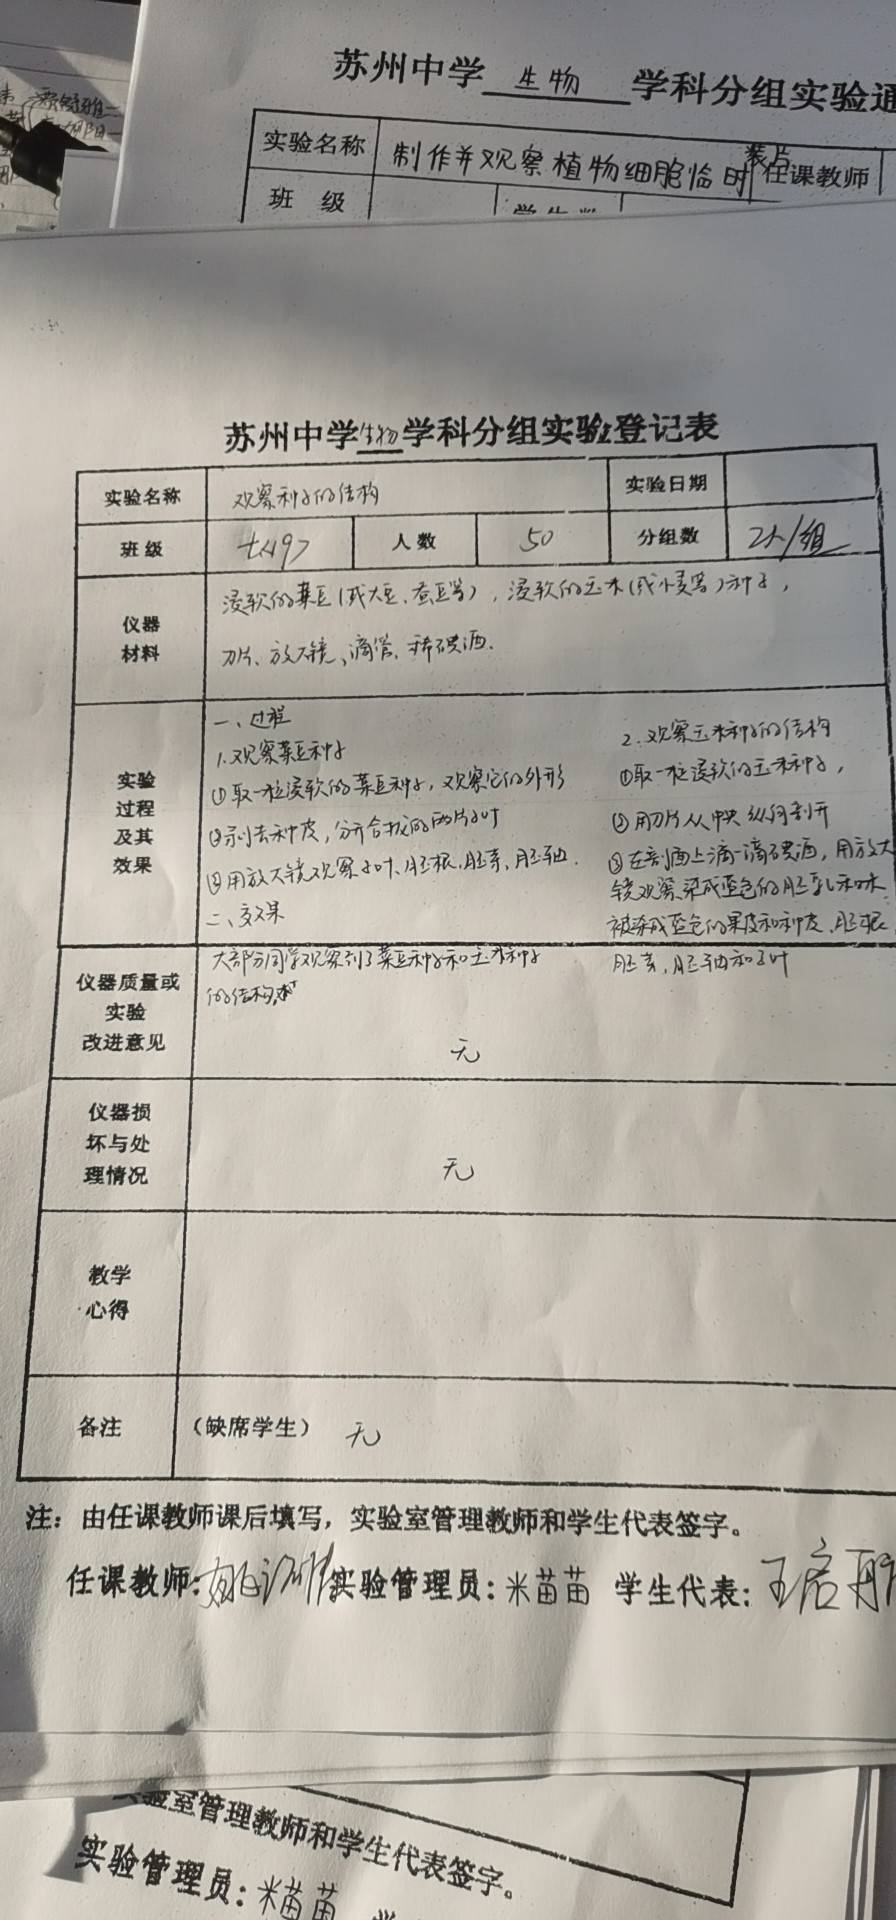 苏州中学 生物 学科分组实验通
实验名称 制作并观察植物细胞临时装片 任课教师
班 级
苏州中学生物学科分组实验登记表
实验名称 观察种子的结构 实验日期
班 级 七(19) 人 数 50 分组数 2人/组
仪器材料
浸软的菜豆(或大豆、蚕豆等),浸软的玉米(或小麦等)种子,
刀片、放大镜、滴管、稀碘酒.
实验过程及其效果
一、过程
1.观察菜豆种子
①取一粒浸软的菜豆种子,观察它的外形
②剥去种皮,分开合拢的两片子叶
③用放大镜观察子叶、胚根、胚芽、胚轴.
二、效果
大部分同学观察到了菜豆种子和玉米种子
的结构
2.观察玉米种子的结构
①取一粒浸软的玉米种子,
②用刀片从中央纵向剖开
③在剖面上滴一滴碘酒,用放大
镜观察染成蓝色的胚乳和未
被染成蓝色的果皮和种皮、胚根
胚芽,胚轴和子叶
仪器质量或
实验
改进意见
无
仪器损
坏与处
理情况
无
教学
心得
备注 (缺席学生) 无
注：由任课教师课后填写，实验室管理教师和学生代表签字。
任课教师: 实验管理员:米苗苗 学生代表:王启航
验室管理教师和学生代表签字。
实验管理员:米苗苗